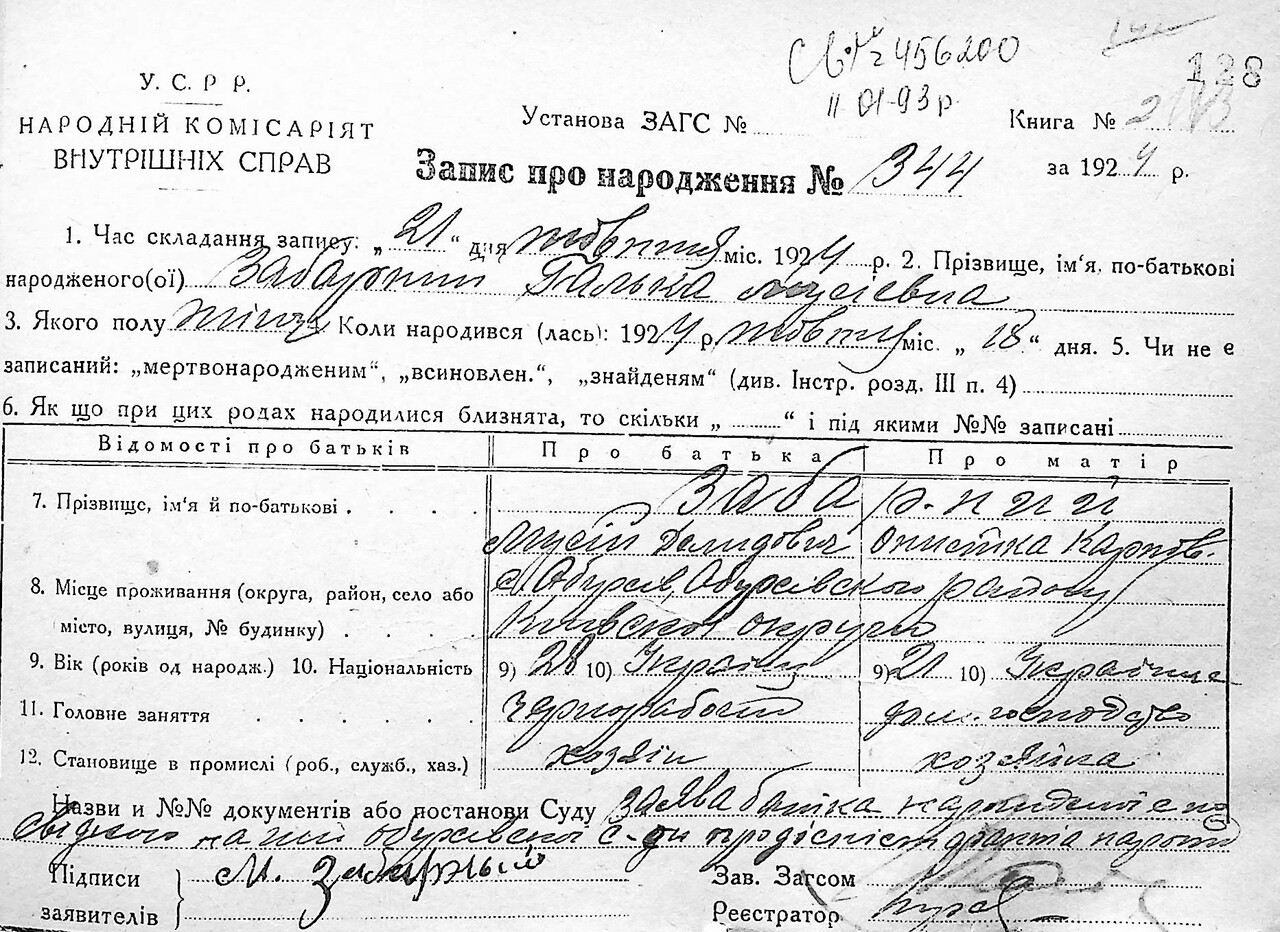 456200
128
У. С. Р Р.
11-01-93 р.
НАРОДНІЙ КОМІСАРІЯТ
Установа ЗАГС №
Книга №
ВНУТРІШНІХ СПРАВ
Запис про народження № 344
за 1924 р.
1. Час складання запису: „ 21 “ дня жовтня міс. 1924 р. 2. Прізвище, ім'я, по-батькові
народженого(ої) Забарний Галька Мусіевна
3. Якого полу жіноч 4. Коли народився (лась): 1924 р. жовтня міс. „ 18 “ дня. 5. Чи не є
записаний: „мертвонародженим“, „всиновлен.“, „знайденям“ (див. Інстр. розд. III п. 4)
6. Як що при цих родах народилися близнята, то скільки „ “ і під якими №№ записані
Відомості про батьків Про батька Про матір
7. Прізвище, ім'я й по-батькові . . . . Забарний
Мусій Демидович Онистка Карпов.
8. Місце проживання (округа, район, село або м. Обухів, Обухівського району
місто, вулиця, № будинку) . . . . Київської округи
9. Вік (років од народж.) 10. Національність 9) 28 10) Україн 9) 21 10) Українка
11. Головне заняття . . . . . . Чернорабоч дом. господство
12. Становище в промислі (роб., служб., хаз.) хозяін хозяйка
Назви и №№ документів або постанови Суду Заява батька
Підписи М. Забарный Зав. Загсом
заявителів Реєстратор